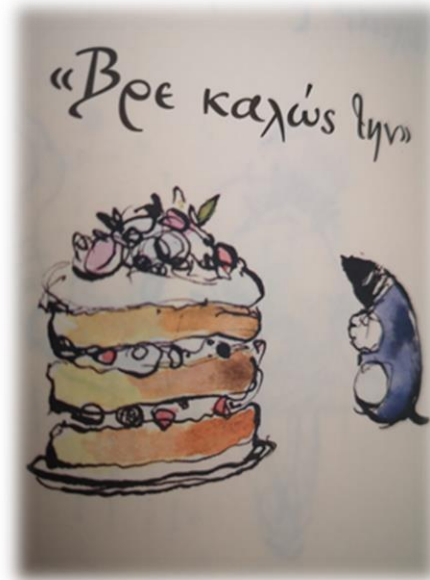 «Βρε καλώς την»